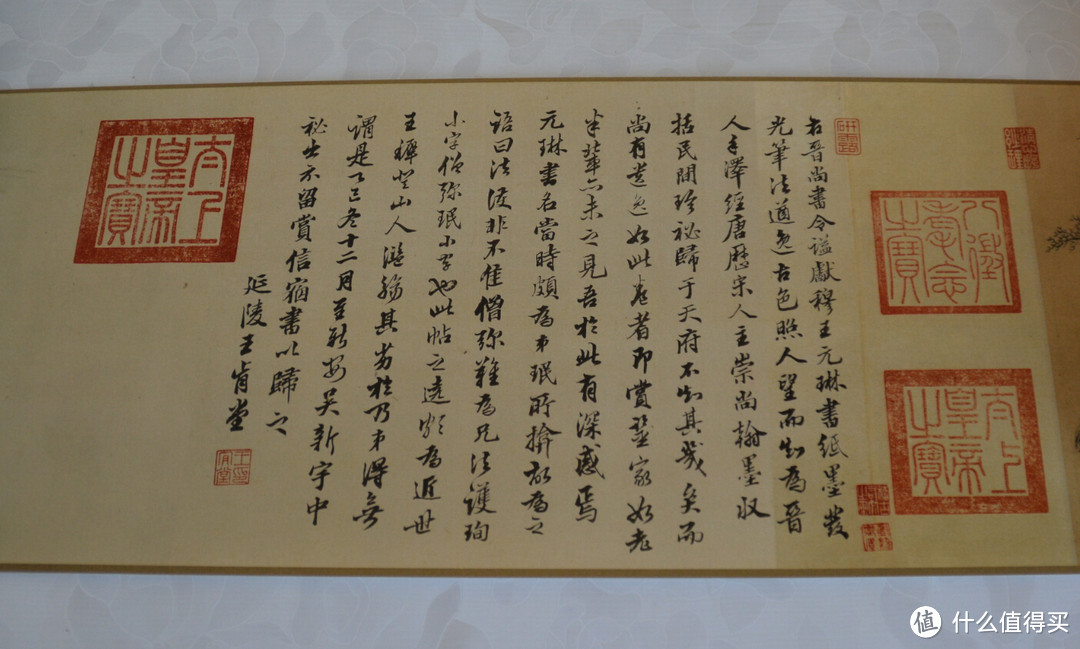 八徵耄念之寶
太上皇帝之寶
研露
右晉尚書令謚獻穆王元琳書紙墨發
光筆法遒逸古色照人望而知為晉
人手澤經唐歷宋人主崇尚翰墨收
括民間珍秘歸于天府不知其幾矣而
尚有遺逸如此卷者即賞鑒家如老
米輩亦未之見吾於此有深感焉
元琳書名當時頗為弟珉所揜故為之
語曰法護非不佳僧彌難為兄法護珣
小字僧彌珉小字也此帖之頗為近世
王穉登山人濫觴其劣於乃弟得無
謂是巳冬十二月至新安吳新宇中
秘出示留賞信宿書以歸之
延陵王肯堂
太上皇帝之寶
值 什么值得买